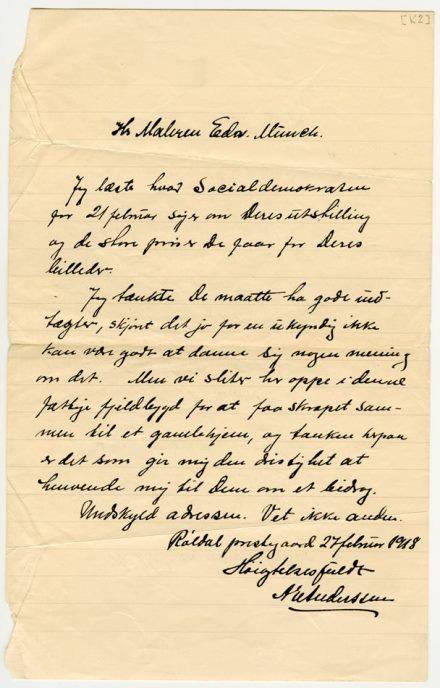 [K2]
Hr Maleren Edv. Munch.
Jeg læste hvad Socialdemokraten
for 21 februar siger om Deres utstilling
og de store priser De faar for Deres
billeder.
Jeg tænkte De maatte ha gode ind-
tægter, skjønt det jo for en ukyndig ikke
kan være godt at danne sig nogen mening
om det. Men vi sliter her oppe i denne
fattige fjeldbygd for at faa skrapet sam-
men til et gamlehjem, og tanken herpaa
er det som gir mig den dristighet at
henvende mig til Dem om et bidrag.
Undskyld adressen. Vet ikke anden.
Røldal prestegaard 27 februar 1918
Høiagtelsesfuldt